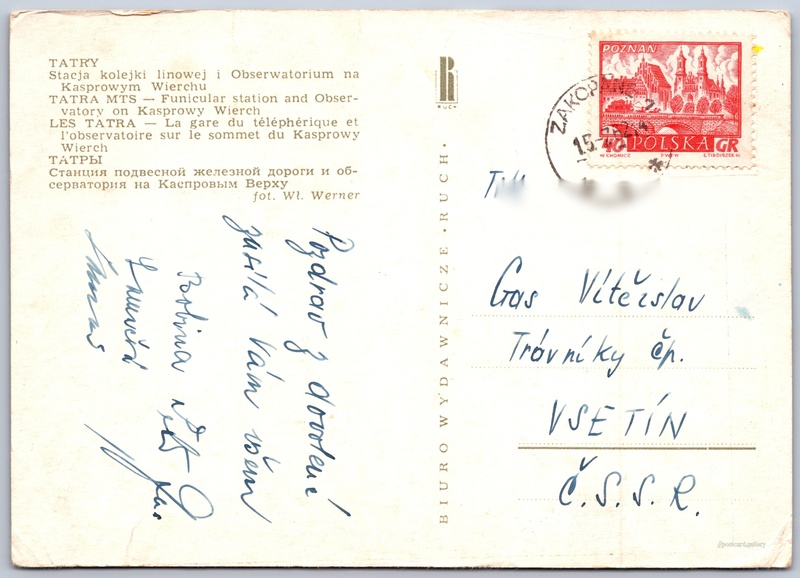 TATRY
Stacja kolejki linowej i Obserwatorium na
Kasprowym Wierchu
TATRA MTS — Funicular station and Obser-
vatory on Kasprowy Wierch
LES TATRA — La gare du téléphérique et
l'observatoire sur le sommet du Kasprowy
Wierch
ТАТРЫ
Станция подвесной железной дороги и об-
серватория на Каспровым Верху
fot. Wł. Werner
R
RUCH
BIURO WYDAWNICZE • RUCH •
POZNAŃ
40 POLSKA GR
ZAKOPANE
Gas Vítězslav
Trávníky čp.
VSETÍN
Č.S.S.R.
Pozdrav z dovolené
zasílá Vám všem
Robina
@postcard.gallery